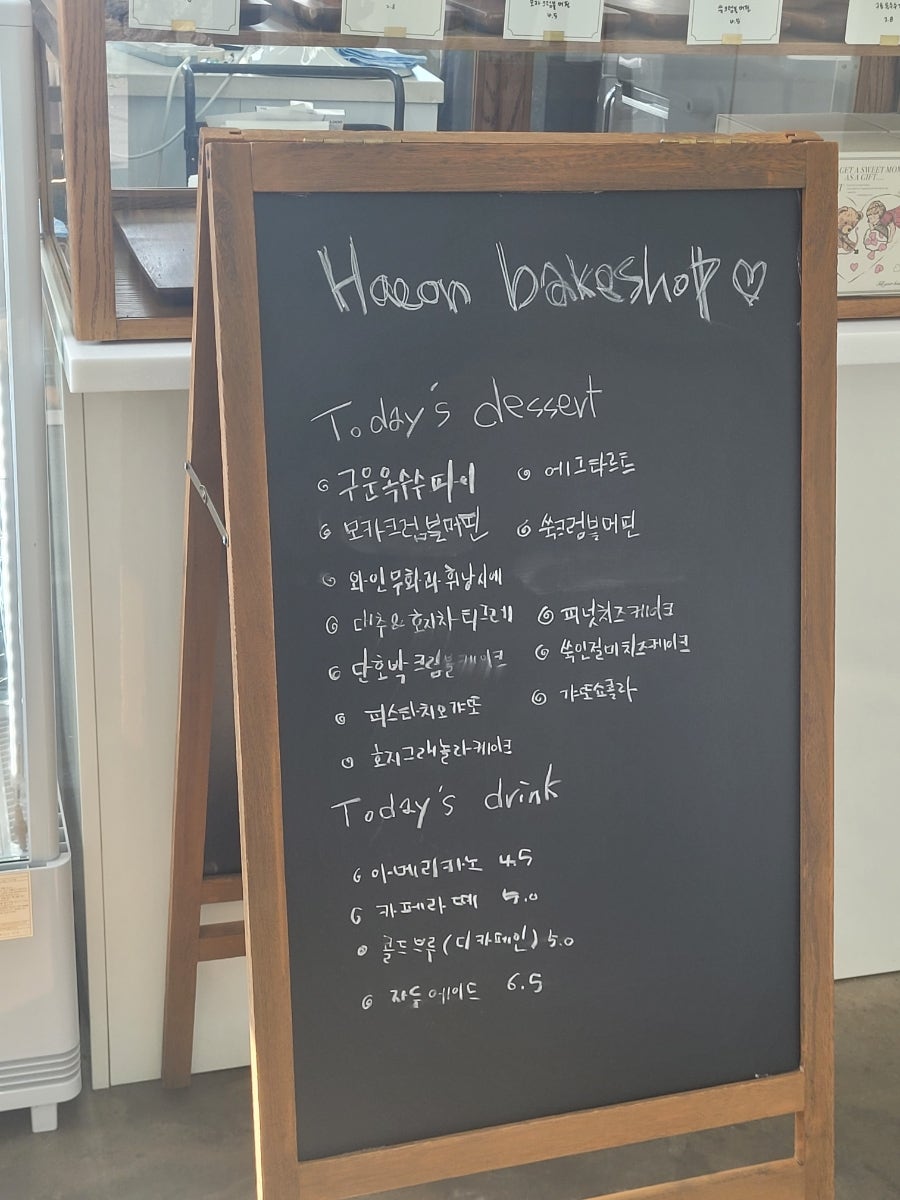 모카크럼블머핀
4.5
쑥크럼블머핀
4.5
3.8
GET A SWEET MOM
AS A GIFT....
Haeon bakeshop ♡
Today's dessert
구운옥수수파이
에그타르트
모카크럼블머핀
쑥크럼블머핀
와인무화과휘낭시에
대추&호지차티그레
피넛치즈케이크
단호박크럼블케이크
쑥인절미치즈케이크
피스타치오갸또
갸또쇼콜라
호지그래놀라케이크
Today's drink
아메리카노 4.5
카페라떼 5.0
콜드브루(디카페인) 5.0
자두에이드 6.5